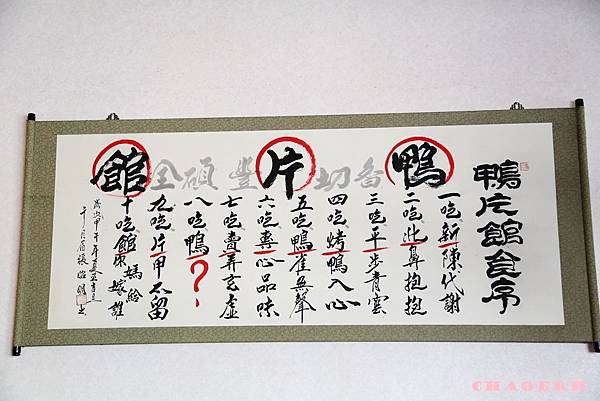 鴨片館食序
鴨香切片豐碩全館
一吃新陳代謝
二吃北鼻抱抱
三吃平步青雲
四吃烤鴨入心
五吃鴨雀無聲
六吃專心品味
七吃賣弄玄虛
八吃鴨？
九吃片甲不留
十吃館媽給嫁誰
甲午年
張昭明
CHAOE